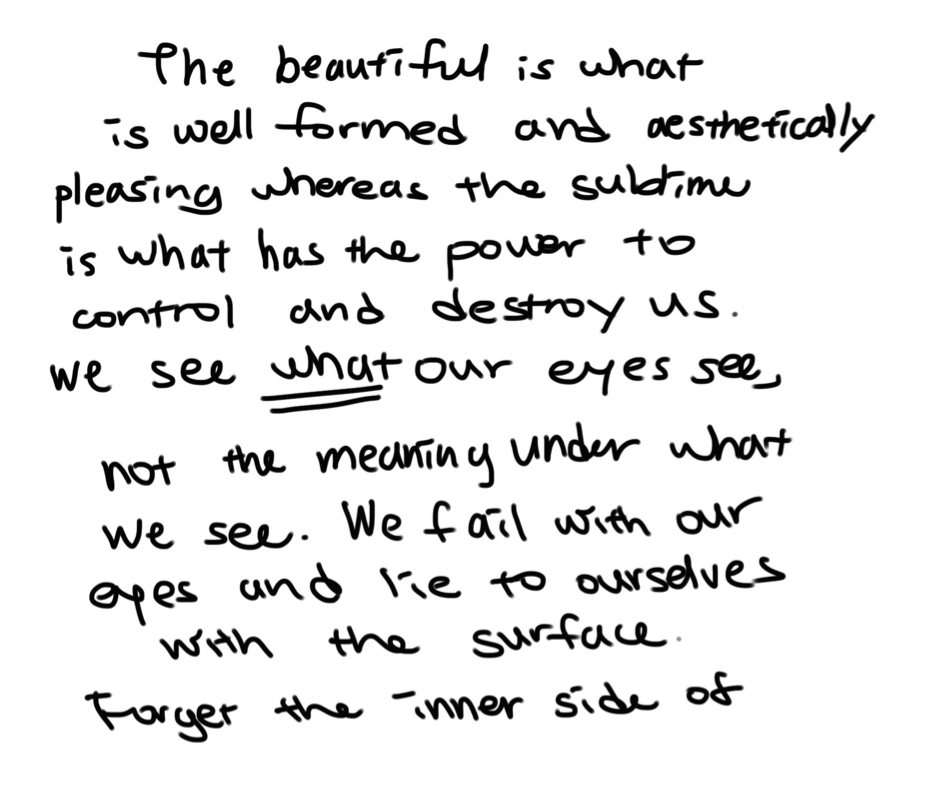 The beautiful is what
is well formed and aesthetically
pleasing whereas the sublime
is what has the power to
control and destroy us.
we see what our eyes see,
not the meaning under what
we see. We fail with our
eyes and lie to ourselves
with the surface.
Forget the inner side of